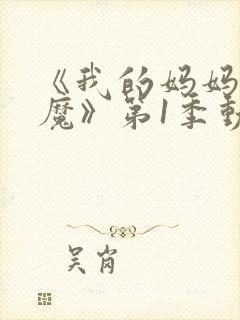 《我的妈妈
魔》第1季動
吴岗